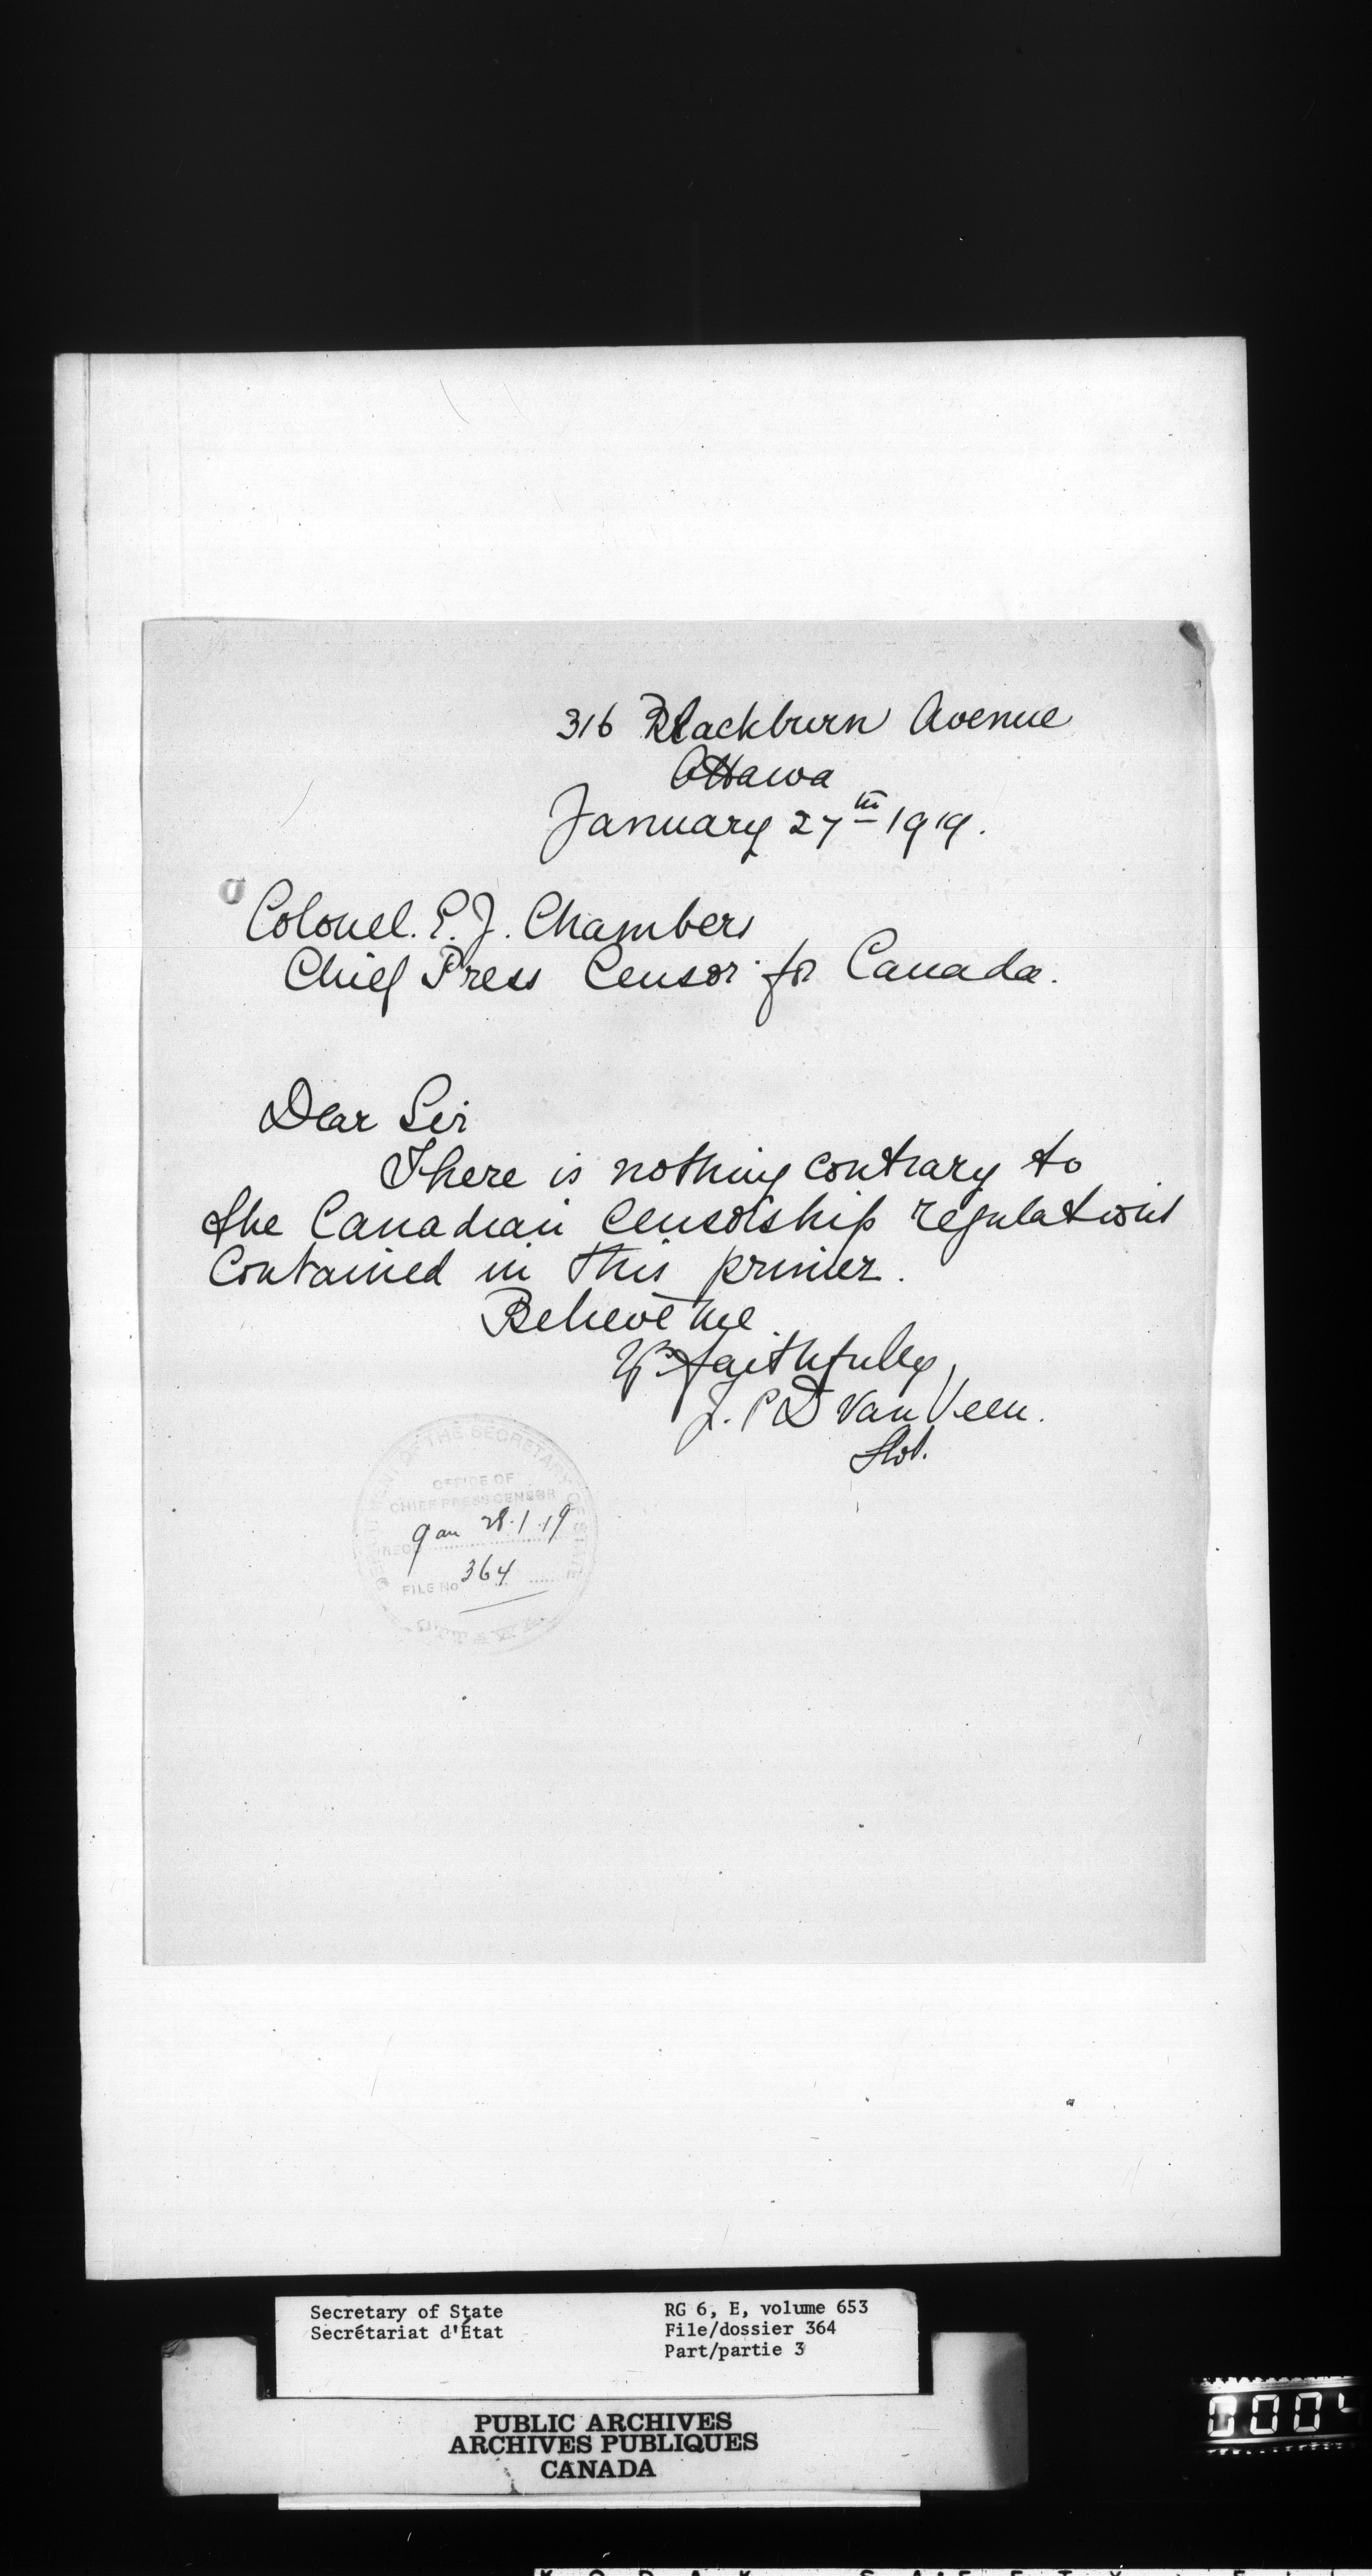 316 Blackburn Avenue
Ottawa
January 27th 1919.
Colonel. E. J. Chambers
Chief Press Censor for Canada.
Dear Sir
There is nothing contrary to
the Canadian Censorship regulations
Contained in this primer.
Believe me
Yrs faithfully,
J. P D Van Veen.
DEPARTMENT OF THE SECRETARY OF STATE
OFFICE OF
CHIEF PRESS CENSOR
REC'D 9 am 28.1.19
FILE No 364
Secretary of State
Secrétariat d'État
RG 6, E, volume 653
File/dossier 364
Part/partie 3
PUBLIC ARCHIVES
ARCHIVES PUBLIQUES
CANADA
0004